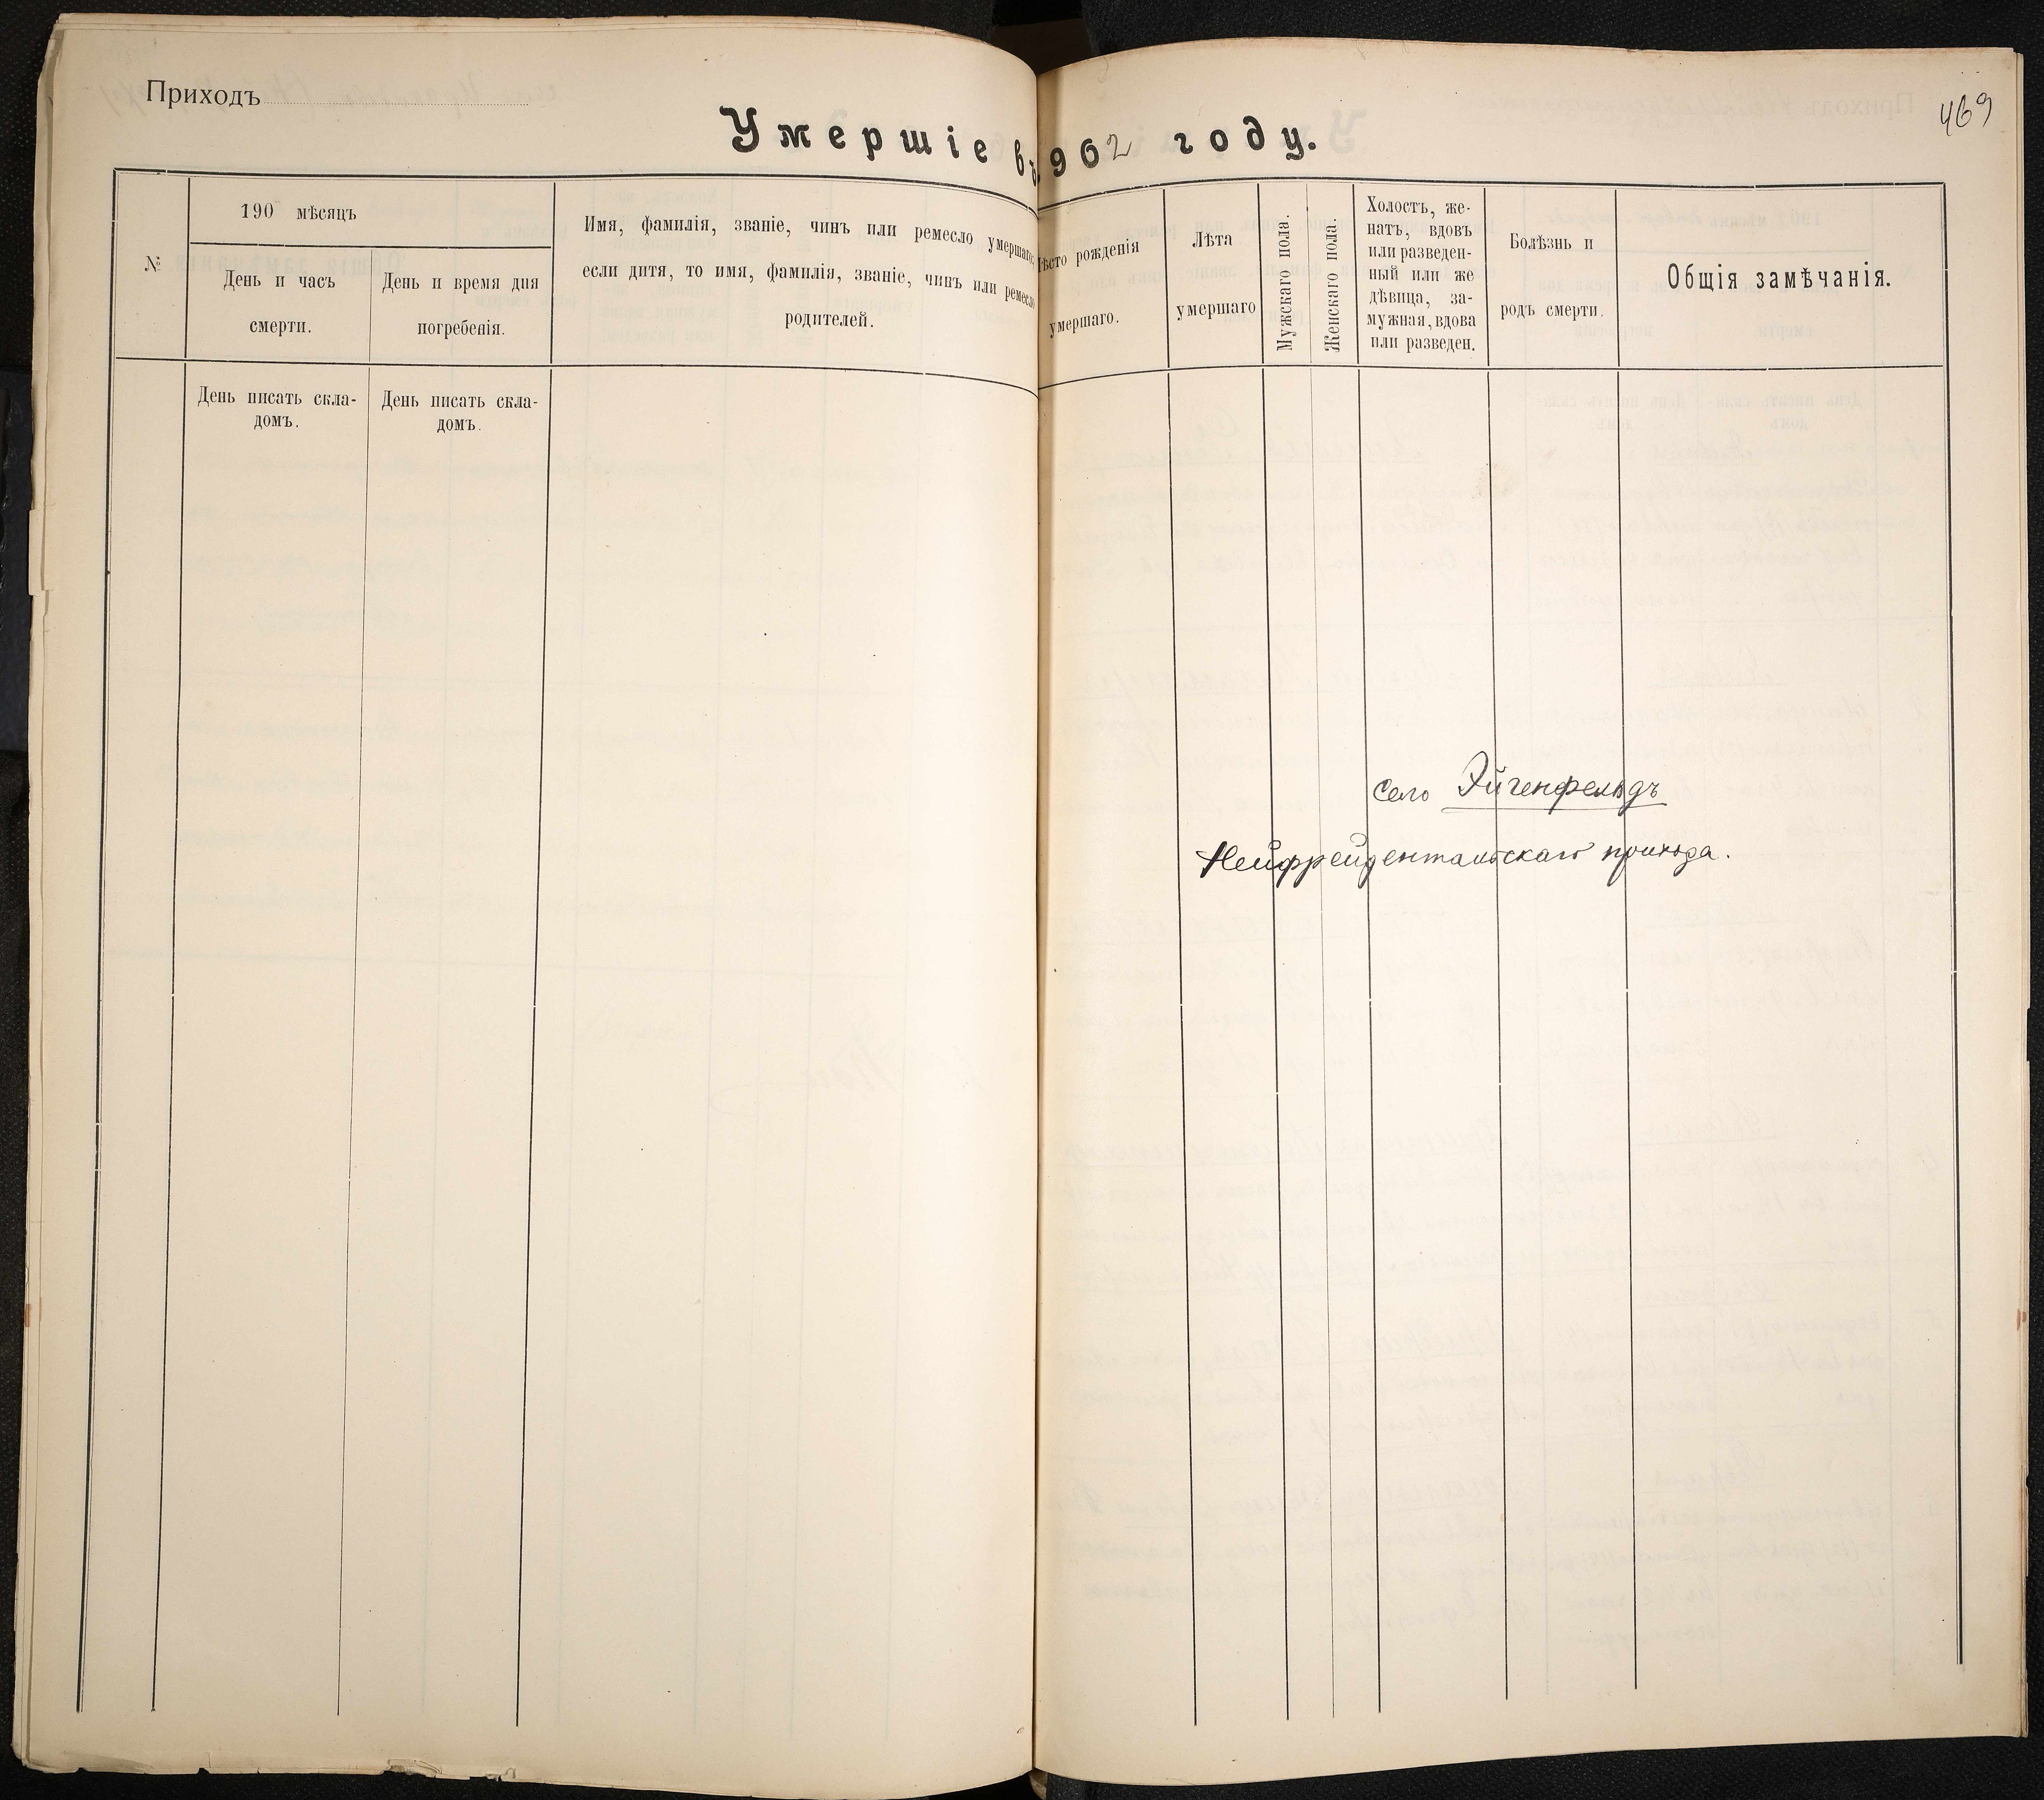 Приходъ
469
Умершіе въ 1902 году.
№
190 мѣсяцъ
День и часъ
смерти.
День и время дня
погребенія.
Имя, фамилія, званіе, чинъ или ремесло умершаго,
если дитя, то имя, фамилія, званіе, чинъ или ремесло
родителей.
Мѣсто рожденія
умершаго.
Лѣта
умершаго
Мужскаго пола.
Женскаго пола.
Холостъ, же-
натъ, вдовъ
или разведен-
ный или же
дѣвица, за-
мужная, вдова
или разведен.
Болѣзнь и
родъ смерти.
Общія замѣчанія.
День писать скла-
домъ.
День писать скла-
домъ.
село Эйгенфельдъ
Нейфрейдентальскаго прихода.